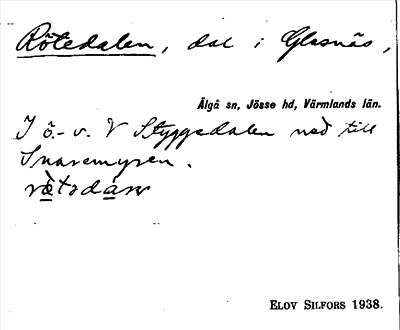 Rötedalen, dal i Glasnäs,
Älgå sn, Jösse hd, Värmlands län.
I ö.- v. V Styggedalen ned till
Snaremyren.
Elov Silfors 1938.